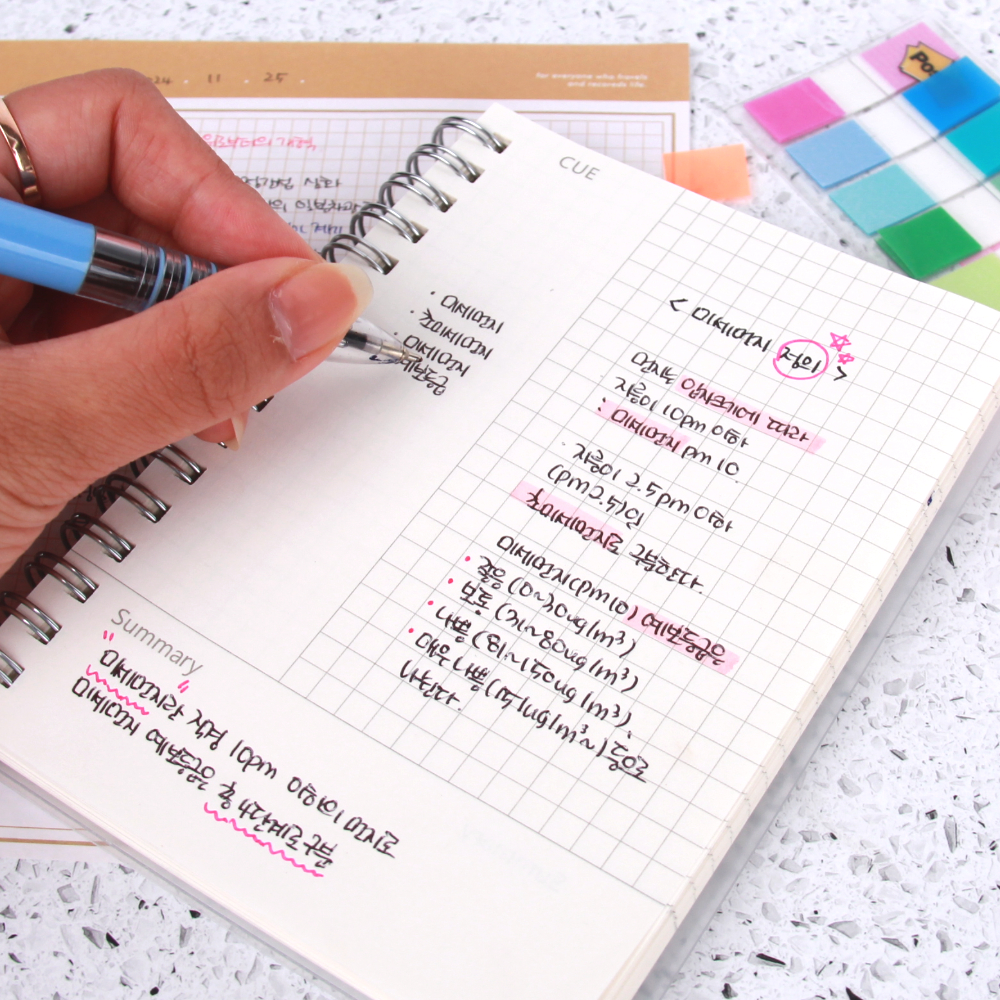 11 . 25 .
for everyone who travels
and recoreds life.
Pos
CUE
· 미세먼지
· 초미세먼지
· 미세먼지
예보등급
< 미세먼지 정의 >
먼지는 입자크기에 따라
· 지름이 10pm 이하
: 미세먼지 pm 10.
· 지름이 2.5pm 이하
(pm2.5)인
초미세먼지로 구분한다.
미세먼지(pm10) 예보등급은
· 좋음 (0~30ug/m³)
· 보통 (31~80ug/m³)
· 나쁨 (81~150ug/m³),
· 매우나쁨 (151ug/m³~)등으로
나뉜다.
Summary
"미세먼지"란 직경 10pm 이하의 먼지로
미세먼지 예보등급은 총 4단계로 구분